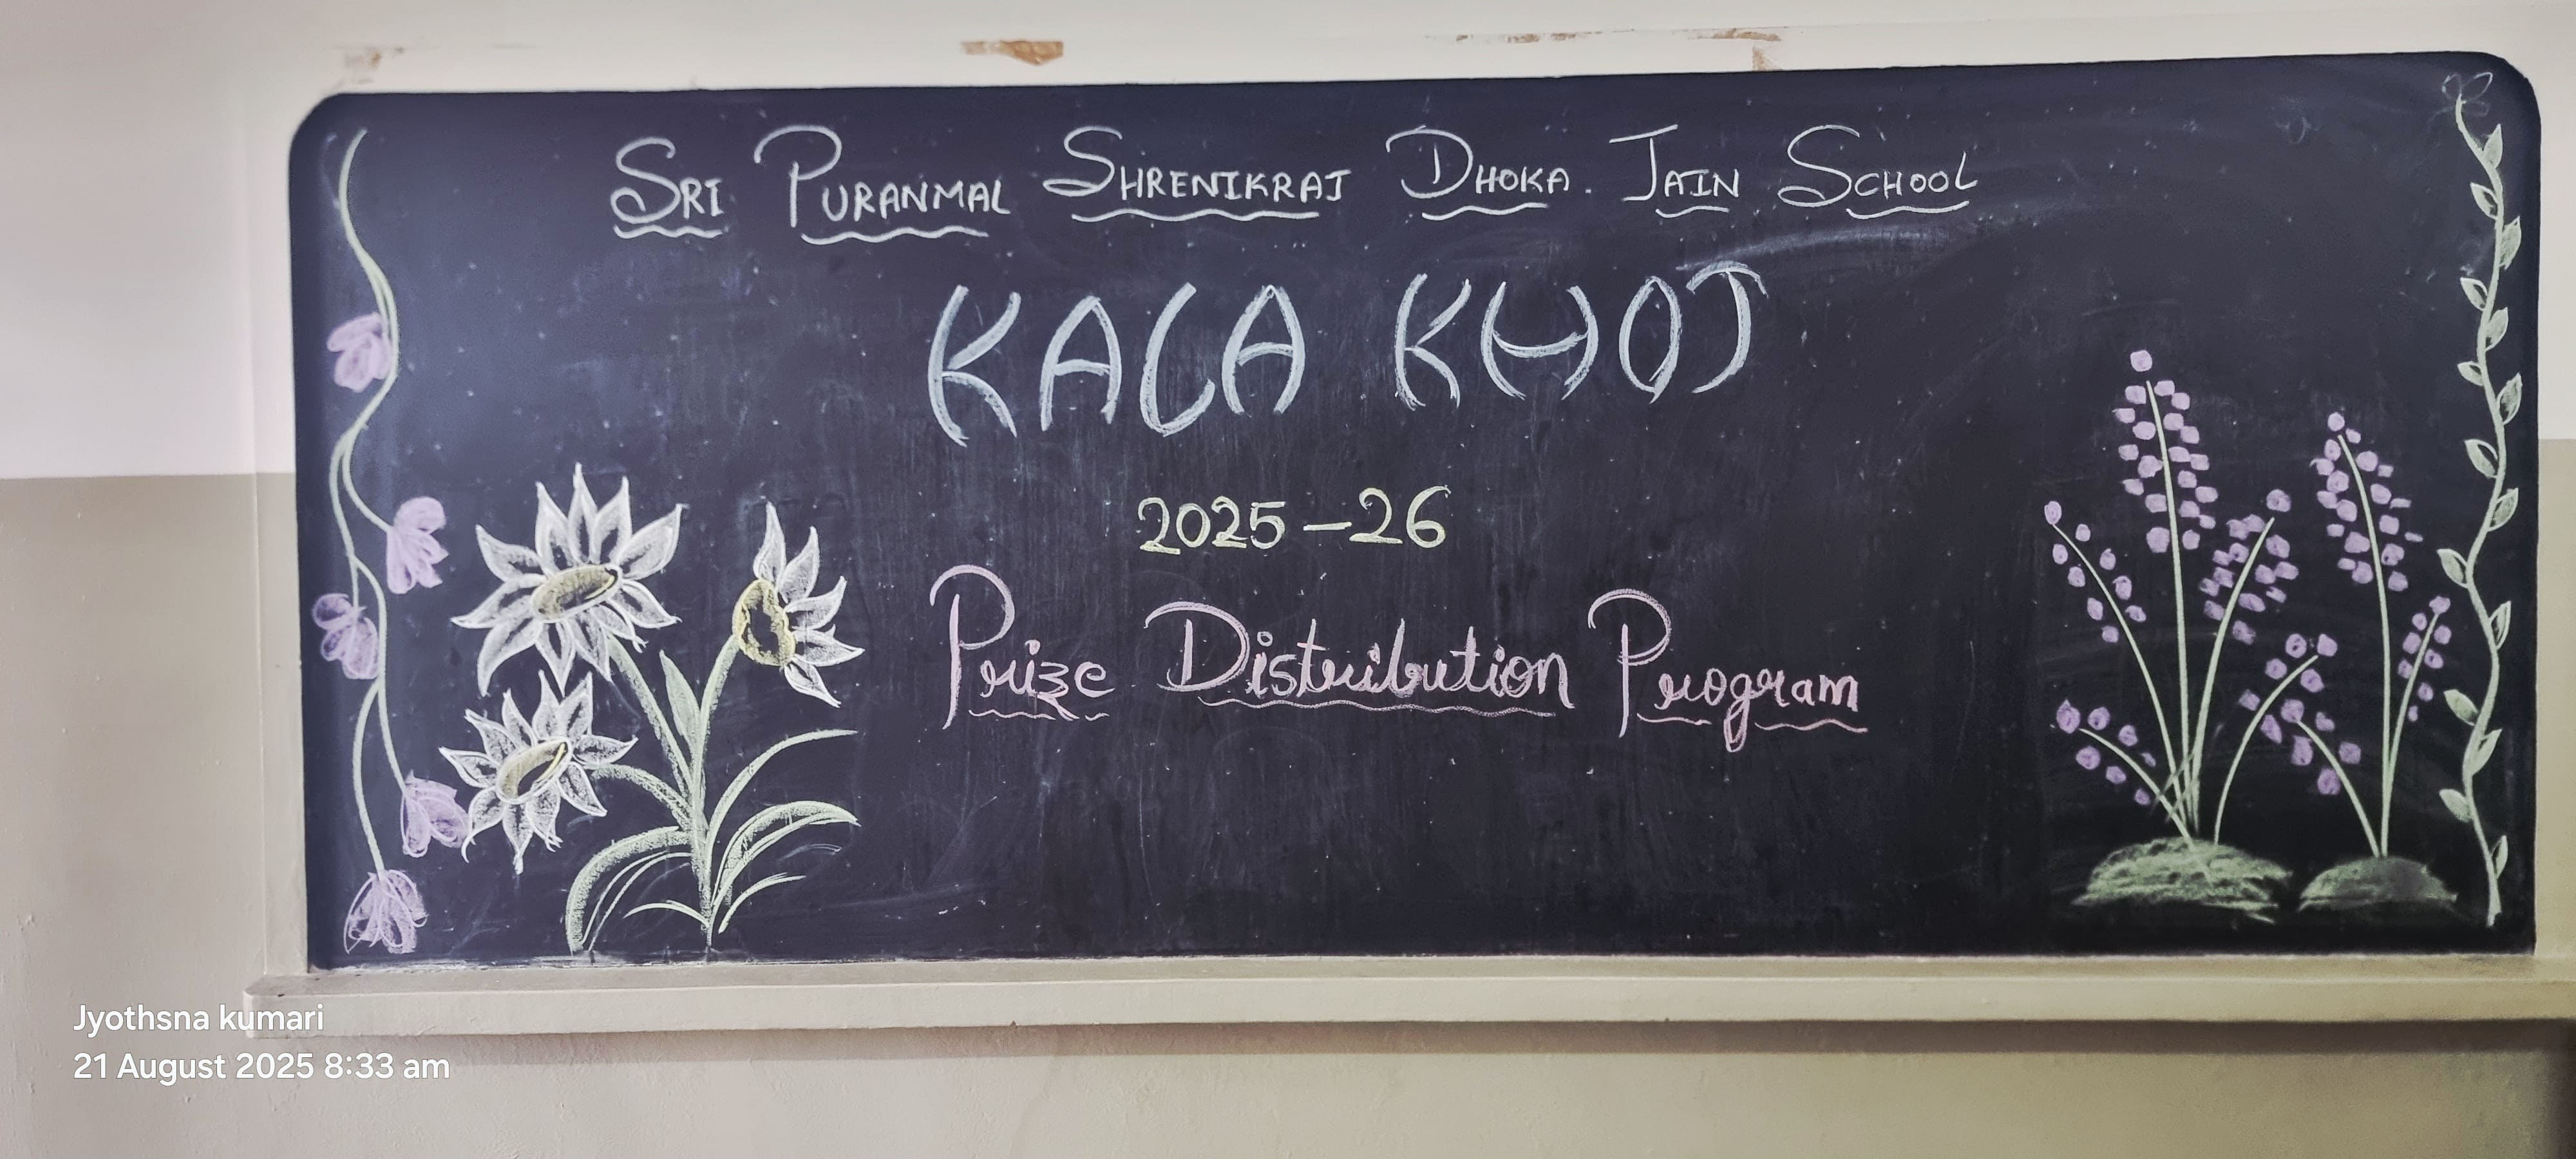 SRI PURANMAL SHRENIKRAJ DHOKA. JAIN SCHOOL
KALA KHOJ
2025-26
Prize Distribution Program
Jyothsna kumari
21 August 2025 8:33 am